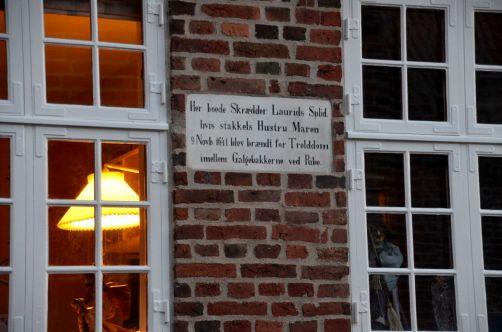 Her boede Skrædder Laurids Splid
hvis stakkels Hustru Maren
9 Novb 1641 blev brændt for Trolddom
imellem Galgebakkerne ved Ribe.